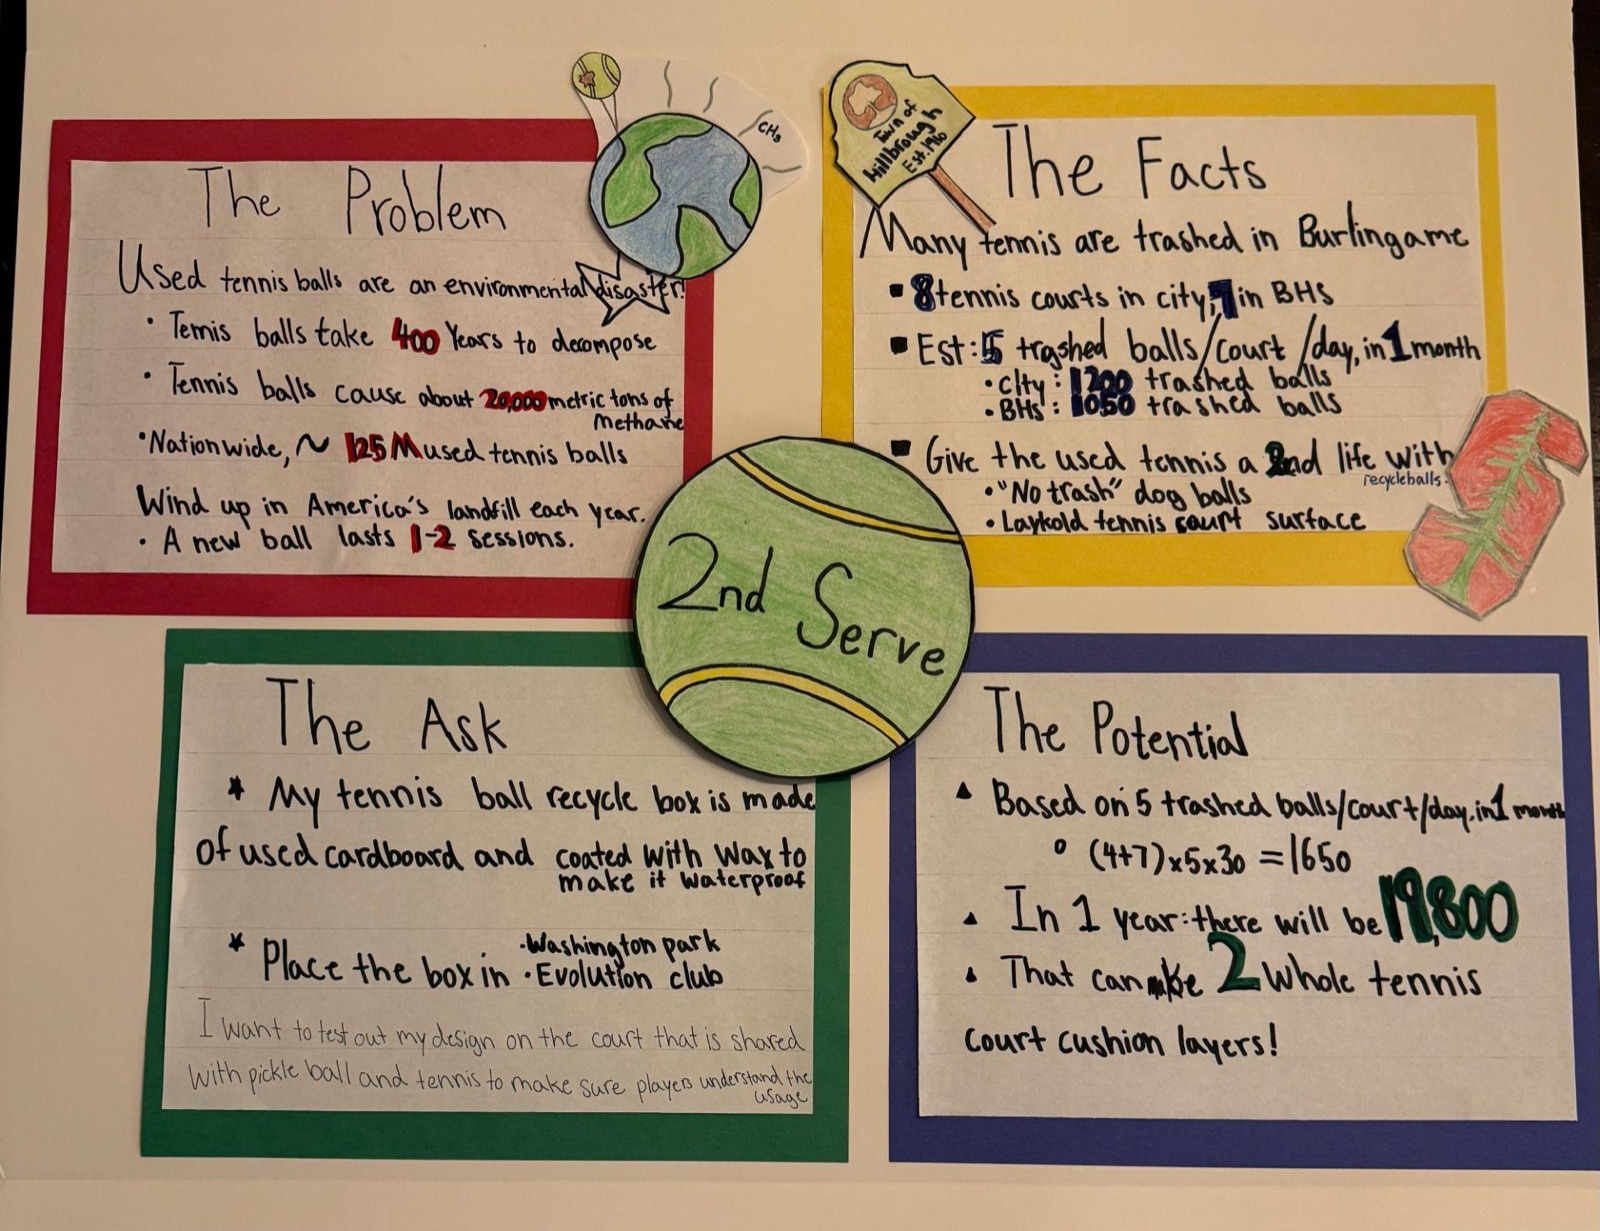 The Problem
Used tennis balls are an environmental disaster!
• Tennis balls take 400 Years to decompose
• Tennis balls cause about 20,000 metric tons of
Methane
• Nationwide, ~ 125M used tennis balls
Wind up in America's landfill each year.
• A new ball lasts 1-2 sessions.
CH₃
Town of
Hillbrough
Est. 1910
The Facts
Many tennis are trashed in Burlingame
▪ 8 tennis courts in city, 7 in BHS
▪ Est: 5 trashed balls/court/day, in 1 month
• city: 1200 trashed balls
• BHS: 1050 trashed balls
▪ Give the used tennis a 2nd life with
recycleballs.
• "No trash" dog balls
• Laykold tennis court surface
2nd Serve
The Ask
* My tennis ball recycle box is made
of used cardboard and coated with wax to
make it waterproof
* Place the box in • Washington park
• Evolution club
I want to test out my design on the court that is shared
with pickle ball and tennis to make sure players understand the
usage
The Potential
▲ Based on 5 trashed balls/court/day, in 1 month
○ (4+7)x5x30 = 1650
▲ In 1 year: there will be 19,800
▲ That can make 2 whole tennis
court cushion layers!